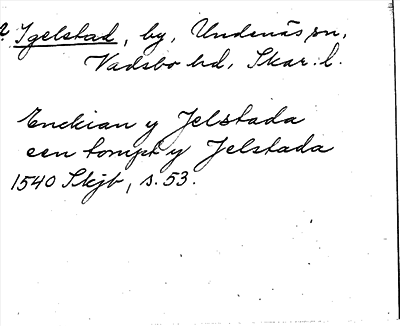 Igelstad, by, Undenäs sn,
Vadsbo hd, Skar. l.
Enckian y Jelstada
een tompt y Jelstada
1540 Skjb, s. 53.